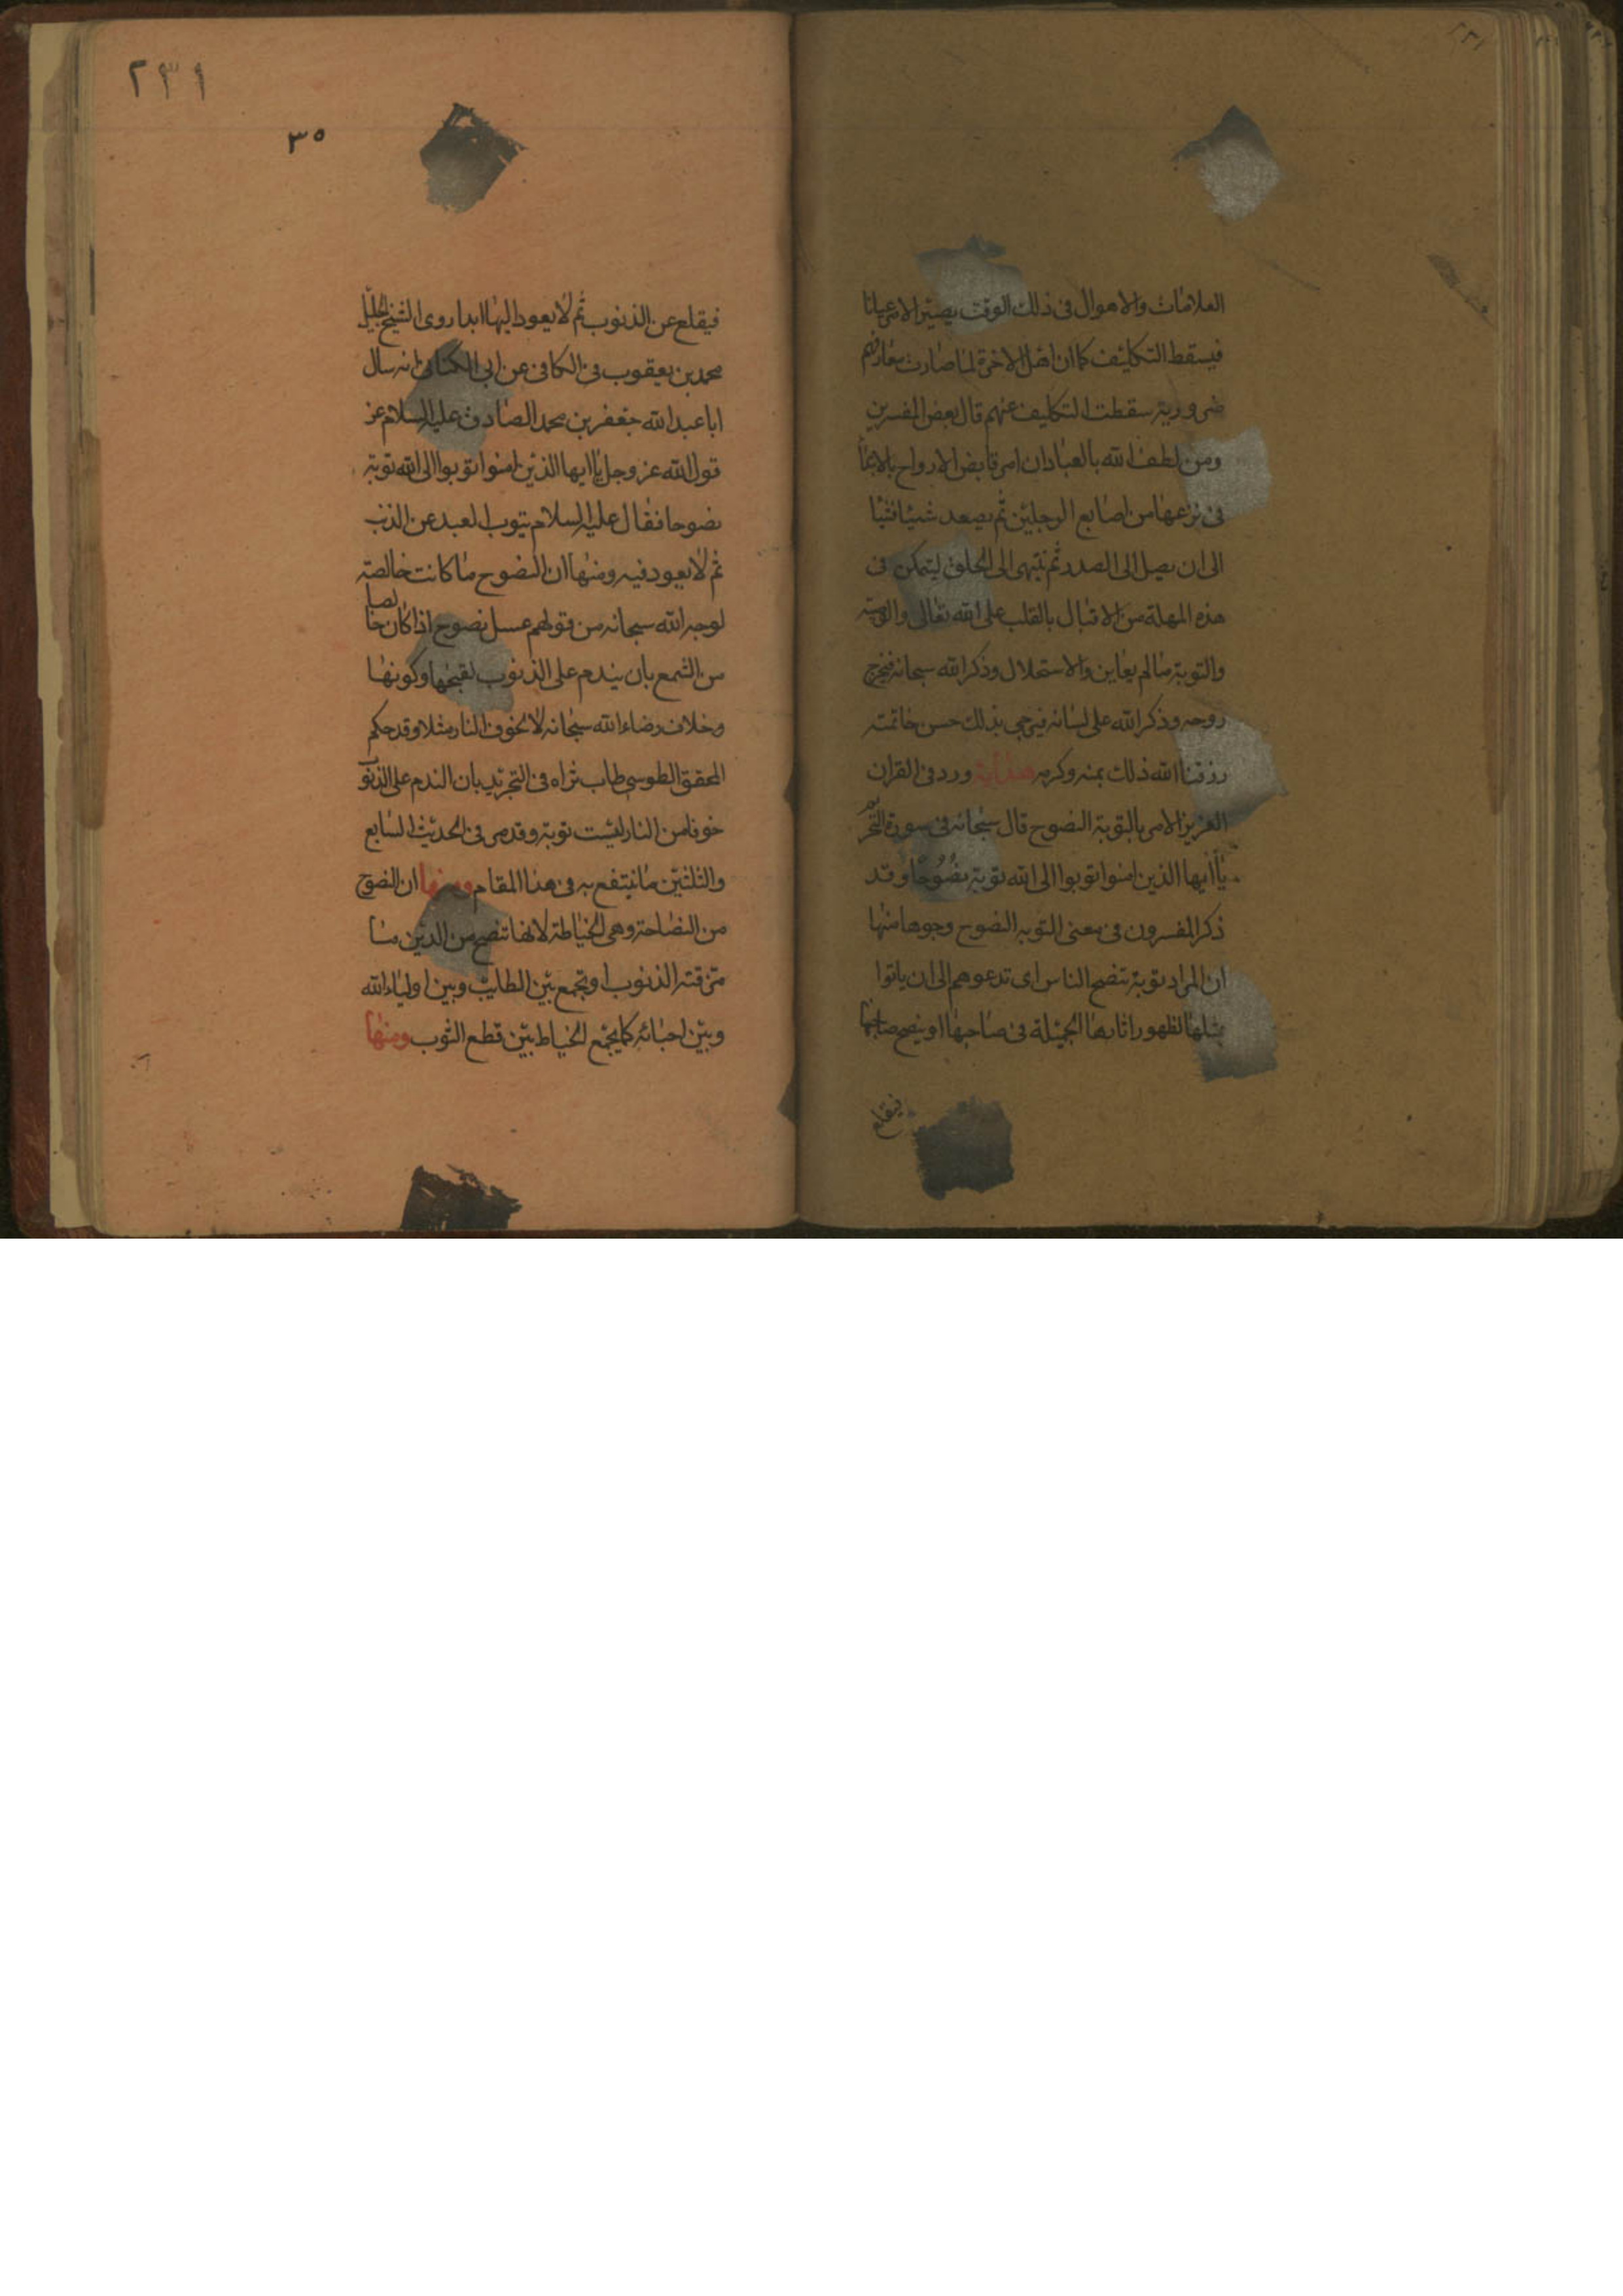 العلامات والاهوال فى ذلك الوقت يصير الامر عيانا
فيسقط التكليف كما ان اهل الاخرة لما صارت معارفهم
ضرورية سقطت التكاليف عنهم قال بعض المفسرين
ومن لطف الله بالعباد ان امر قابض الارواح بالابتدا
فى نزعها من اصابع الرجلين ثم يصعد شيئا فشيا
الى ان يصل الى الصدر ثم ينتهى الى الحلق ليتمكن فى
هذه المهلة من الاقبال بالقلب على الله تعالى والوصية
والتوبة ما لم يعاين والاستحلال وذكر الله سبحانه فيخرج
روحه وذكر الله على لسانه فيرجى بذلك حسن خاتمته
رزقنا الله ذلك بمنه وكرمه هداية ورد فى القران
العزيز الامر بالتوبة النصوح قال سبحانه فى سورة التحريم
يا ايها الذين امنوا توبوا الى الله توبة نصوحا وقد
ذكر المفسرون فى معنى التوبه النصوح وجوها منها
ان المراد توبة تنصح الناس اى تدعوهم الى ان ياتوا
بمثلها لظهور اثارها الجميلة فى صاحبها او ينصح صاحبها
فيقلع
٢٣١
٣٥
فيقلع عن الذنوب ثم لا يعود اليها ابدا روى الشيخ الجليل
محمد بن يعقوب فى الكافى عن ابى الكنانى انه سال
ابا عبد الله جعفر بن محمد الصادق عليه السلام عن
قول الله عز وجل يا ايها الذين امنوا توبوا الى الله توبة
نصوحا فقال عليه السلام يتوب العبد عن الذنب
ثم لا يعود فيه ومنها ان النصوح ما كانت خالصة
لوجه الله سبحانه من قولهم عسل نصوح اذا كان خالصا
من الشمع بان يندم على الذنوب لقبحها وكونها
وخلاف رضاء الله سبحانه لا لخوف النار مثلا وقد حكم
المحقق الطوسى طاب ثراه فى التجريد بان الندم على الذنوب
خوفا من النار ليست توبة وقد مر فى الحديث السابع
والثلثين ما ينتفع به فى هذا المقام ومنها ان النصوح
من النصاحة وهى الخياطة لانها تنصح من الدين ما
مزقته الذنوب او تجمع بين الطايب وبين اولياء الله
وبين احبائه كما يجمع الخياط بين قطع الثوب ومنها